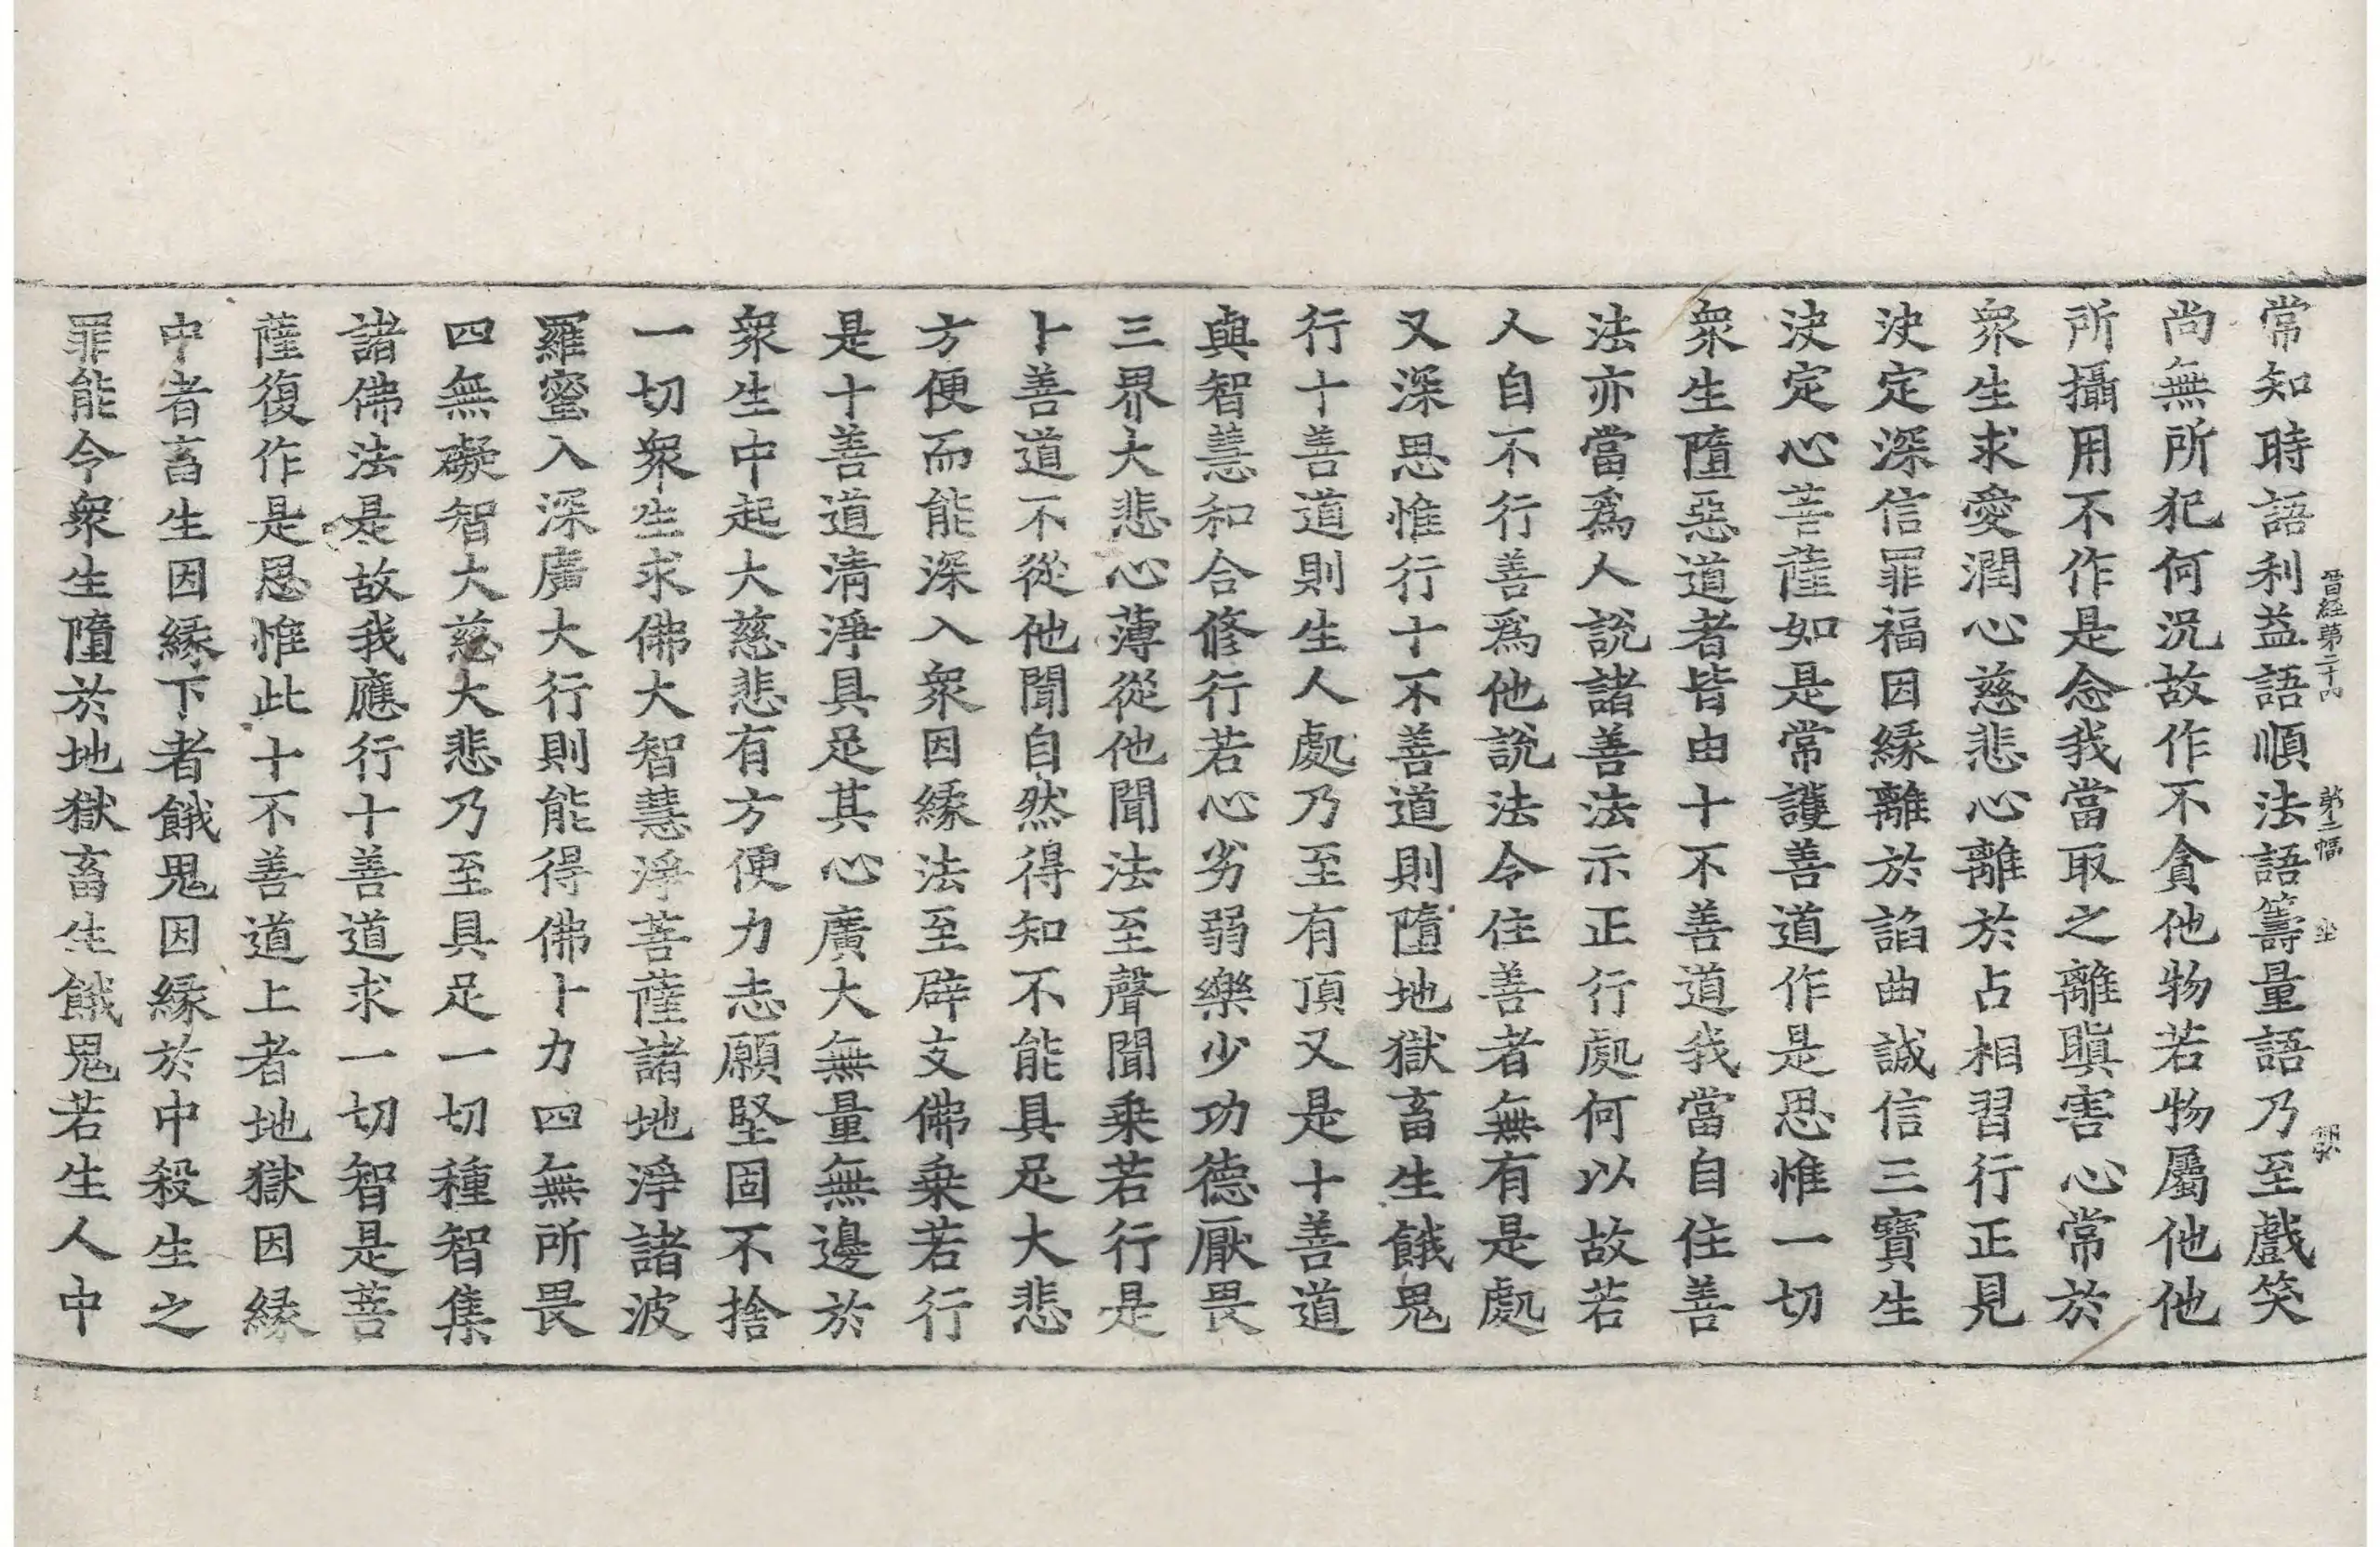 晉經第二十四 第二幅 坐
常知時語利益語順法語籌量語乃至戲笑
尚無所犯何況故作不貪他物若物屬他他
所攝用不作是念我當取之離瞋害心常於
眾生求愛潤心慈悲心離於占相習行正見
決定深信罪福因緣離於諂曲誠信三寶生
決定心菩薩如是常護善道作是思惟一切
眾生墮惡道者皆由十不善道我當自住善
法亦當為人說諸善法示正行處何以故若
人自不行善為他說法令住善者無有是處
又深思惟行十不善道則墮地獄畜生餓鬼
行十善道則生人處乃至有頂又是十善道
與智慧和合修行若心劣弱樂少功德厭畏
三界大悲心薄從他聞法至聲聞乗若行是
十善道不從他聞自然得知不能具足大悲
方便而能深入眾因緣法至辟支佛乗若行
是十善道清淨具足其心廣大無量無邊於
眾生中起大慈悲有方便力志願堅固不捨
一切眾生求佛大智慧淨菩薩諸地淨諸波
羅蜜入深廣大行則能得佛十力四無所畏
四無礙智大慈大悲乃至具足一切種智集
諸佛法是故我應行十善道求一切智是菩
薩復作是思惟此十不善道上者地獄因緣
中者畜生因緣下者餓鬼因緣於中殺生之
罪能令眾生墮於地獄畜生餓鬼若生人中